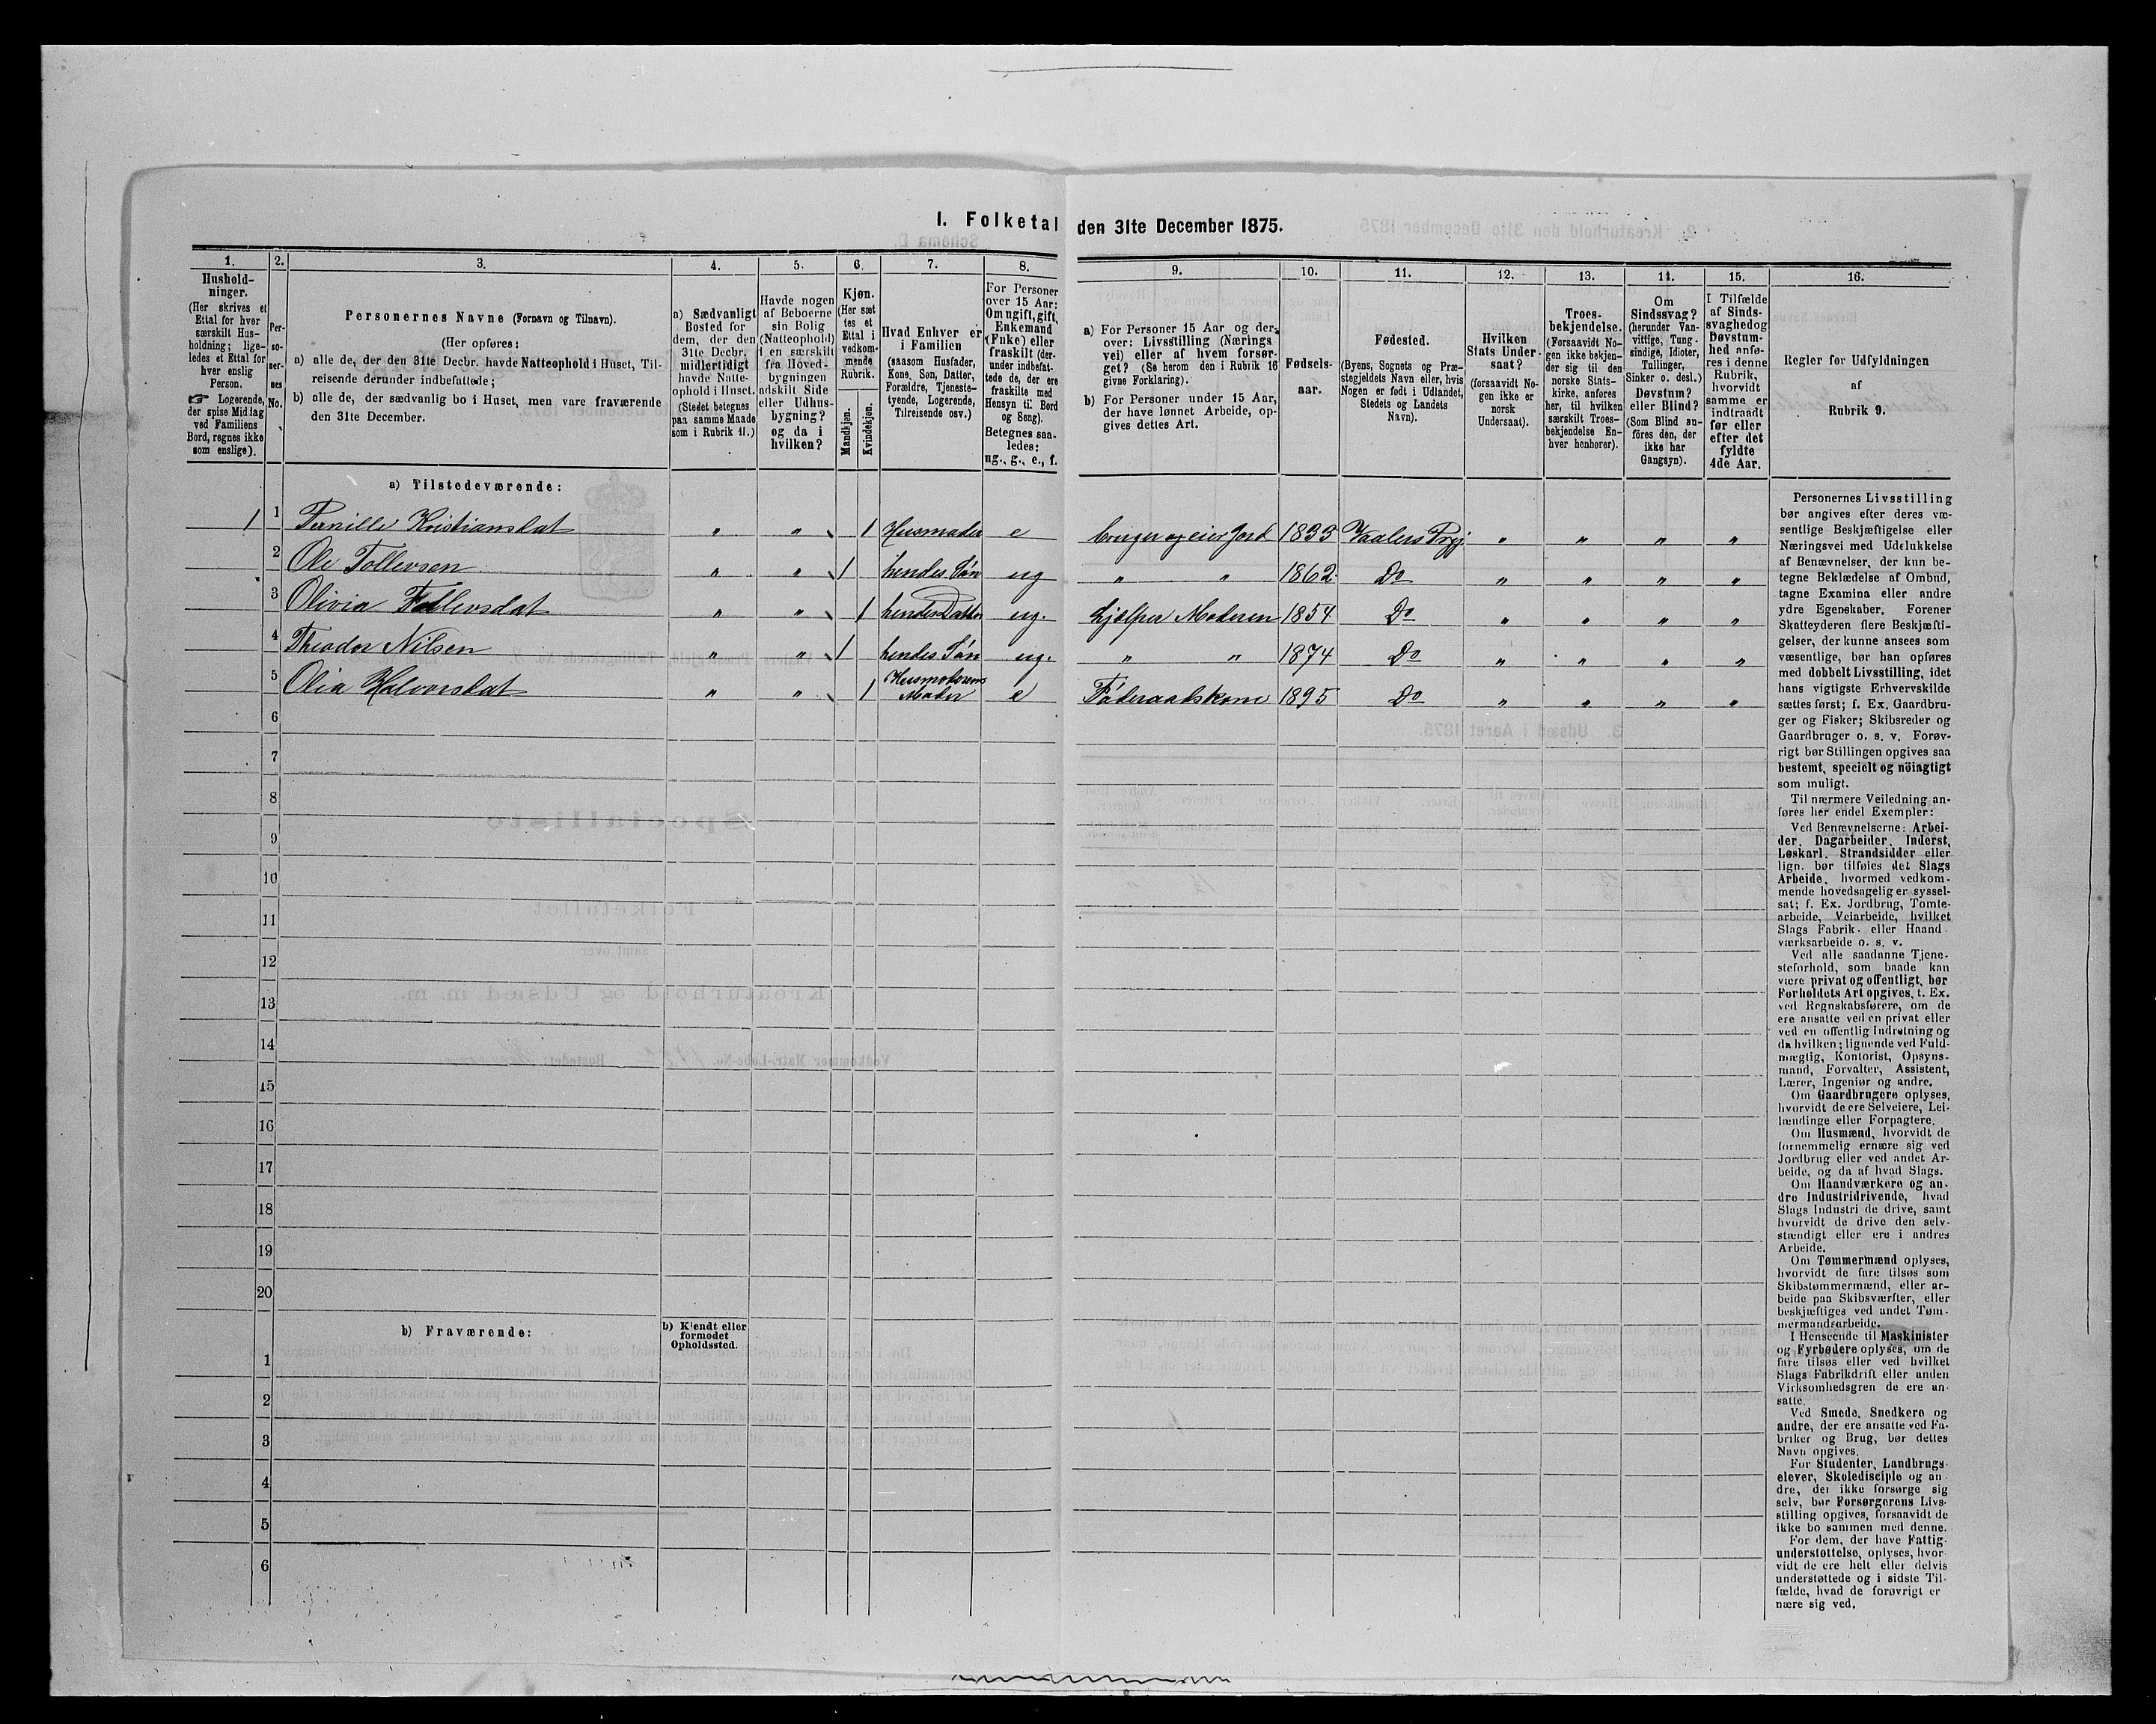 I. Folketal den 31te December 1875.
1.
Hushold-
ninger.
(Her skrives et
Ettal for hver
særskilt Hus-
holdning; lige-
ledes et Ettal for
hver enslig
Person.
☞ Logerende,
der spise Middag
ved Familiens
Bord, regnes ikke
som enslige).
2.
Per-
so-
ner-
nes
No.
3.
Personernes Navne (Fornavn og Tilnavn).
(Her opføres:
a) alle de, der den 31te Decbr. havde Natteophold i Huset, Til-
reisende derunder indbefattede;
b) alle de, der sædvanlig bo i Huset, men vare fraværende
den 31te December.
4.
a) Sædvanligt
Bosted for
dem, der den
31te Decbr.
midlertidigt
havde Natte-
ophold i Huset.
(Stedet betegnes
paa samme Maade
som i Rubrik 11.)
5.
Havde nogen
af Beboerne
sin Bolig
(Natteophold)
i en særskilt
fra Hoved-
bygningen
adskilt Side
eller Udhus-
bygning?
og da i
hvilken?
6.
Kjøn.
(Her sæt
tes et
Ettal i
vedkom-
mende
Rubrik.
Mandkjøn.
Kvindekjøn.
7.
Hvad Enhver er
i Familien
(saasom Husfader,
Kone, Søn, Datter,
Forældre, Tjeneste-
tyende, Logerende,
Tilreisende osv.)
8.
For Personer
over 15 Aar:
Om ugift, gift,
Enkemand
(Enke) eller
fraskilt (der-
under indbefat-
tede de, der ere
fraskilte med
Hensyn til Bord
og Seng).
Betegnes saa-
ledes:
ug., g., e., f.
9.
a) For Personer 15 Aar og der-
over: Livsstilling (Nærings
vei) eller af hvem forsør-
get? (Se herom den i Rubrik 16
givne Forklaring).
b) For Personer under 15 Aar,
der have lønnet Arbeide, op-
gives dettes Art.
10.
Fødsels-
aar.
11.
Fødested.
(Byens, Sognets og Præ-
stegjeldets Navn eller, hvis
Nogen er født i Udlandet,
Stedets og Landets
Navn).
12.
Hvilken
Stats Under-
saat?
(forsaavidt No-
gen ikke er
norsk
Undersaat).
13.
Troes-
bekjendelse.
(Forsaavidt No-
gen ikke bekjen-
der sig til den
norske Stats-
kirke, anføres
her, til hvilken
særskilt Troes-
bekjendelse En-
hver henhører).
14.
Om
Sindssvag?
(herunder Van-
vittige, Tung-
sindige, Idioter,
Tullinger,
Sinker o. desl.)
Døvstum?
eller Blind?
(Som Blind an-
føres den, der
ikke har
Gangsyn).
15.
I Tilfælde
af Sinds-
svaghed og
Døvstum-
hed anfø-
res i denne
Rubrik,
hvorvidt
samme er
indtraadt
før eller
efter det
fyldte
4de Aar.
16.
Regler for Udfyldningen
af
Rubrik 9.
a) Tilstedeværende:
1 1 Pernille Kristiansdat " " 1 Husmoder e bruger og eier Jord 1833 Vaalers Prgj " " " "
2 Ole Tollevsen " " 1 hendes Søn ug " " 1862 Do " " " "
3 Olivia Tollevsdat " " 1 hendes Datter ug. hjælper Moderen 1854 Do " " " "
4 Theodor Nilsen " " 1 hendes Søn ug. " " 1874 Do " " " "
5 Olia Halvorsdat " " 1 Husmoderens Moder e Føderaadskone 1895 Do " " " "
6
7
8
9
10
11
12
13
14
15
16
17
18
19
20
b) Fraværende:
b) Kjendt eller
formodet
Opholdssted.
1
2
3
4
5
6
Personernes Livsstilling
bør angives efter deres væ-
sentlige Beskjæftigelse eller
Næringsvei med Udelukkelse
af Benævnelser, der kun be-
tegne Beklædelse af Ombud,
tagne Examina eller andre
ydre Egenskaber. Forener
Skatteyderen flere Beskjæfti-
gelser, der kunne ansees som
væsentlige, bør han opføres
med dobbelt Livsstilling, idet
hans vigtigste Erhvervskilde
sættes først; f. Ex. Gaardbru-
ger og Fisker; Skibsreder og
Gaardbruger o. s. v. Forøv-
rigt bør Stillingen opgives saa
bestemt, specielt og nöiagtigt
som muligt.
Til nærmere Veiledning an-
føres her endel Exempler:
Ved Benævnelserne: Arbei-
der, Dagarbeider, Inderst,
Løskarl, Strandsidder eller
lign. bør tilføies det Slags
Arbeide, hvormed vedkom-
mende hovedsagelig er syssel-
sat; f. Ex. Jordbrug, Tomte-
arbeide, Veiarbeide, hvilket
Slags Fabrik- eller Haand-
værksarbeide o. s. v.
Ved alle saadanne Tjene-
steforhold, som baade kan
være privat og offentligt, bør
Forholdets Art opgives, t. Ex.
ved Regnskabsførere, om de
ere ansatte ved en privat eller
ved en offentlig Indretning og
da hvilken; lignende ved Fuld-
mægtig, Kontorist, Opsyns-
mand, Forvalter, Assistent,
Lærer, Ingeniør og andre.
Om Gaardbrugere oplyses,
hvorvidt de ere Selveiere, Lei-
lændinge eller Forpagtere.
Om Husmænd, hvorvidt de
fornemmelig ernære sig ved
Jordbrug eller ved andet Ar-
beide, og da af hvad Slags.
Om Haandværkere og an-
dre Industridrivende, hvad
Slags Industri de drive, samt
hvorvidt de drive den selv-
stændigt eller ere i andres
Arbeide.
Om Tømmermænd oplyses,
hvorvidt de fare tilsøs som
Skibstømmermænd, eller ar-
beide paa Skibsværfter, eller
beskjæftiges ved andet Tøm-
mermandsarbeide.
I Henseende til Maskinister
og Fyrbødere oplyses, om de
fare tilsøs eller ved hvilket
Slags Fabrikdrift eller anden
Virksomhedsgren de ere an-
satte.
Ved Smede, Snedkere og
andre, der ere ansatte ved Fa-
briker og Brug, bør dettes
Navn opgives.
For Studenter, Landbrugs-
elever, Skoledisciple og an-
dre, der ikke forsørge sig
selv, bør Forsørgerens Livs-
stilling opgives, forsaavidt de
ikke bo sammen med denne.
For dem, der have Fattig-
understøttelse, oplyses, hvor-
vidt de ere helt eller delvis
understøttede og i sidste Til-
fælde, hvad de forøvrigt er-
nære sig ved.